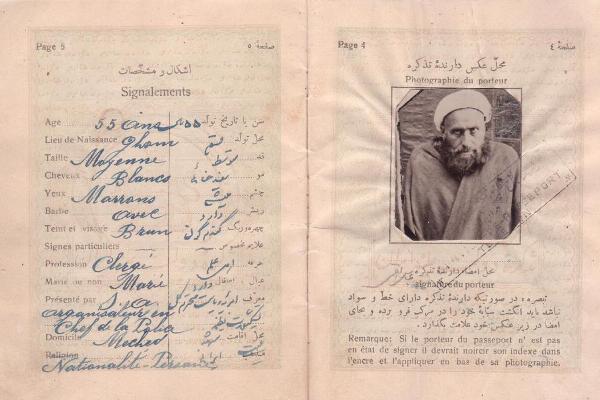 Page 5 صفحهٔ ٥
اشکال و مشخّصات
Signalements
Age 55 Ans سن یا تاریخ تولّد
Lieu de Naissance Ghom محلّ تولّد قم
Taille Moyenne قد متوسط
Cheveux Blancs مو
Yeux Marrons چشم میشی
Barbe avec ریش دارد
Teint et visage Brun چهره و رنگ گندم گون
Signes particuliers علایم خصوصی
Profession Clergé حرفه
Marié ou non Marié دارد
Présenté par S.A. معرّف
organisateur en
Chef de la Police
Domicile Meched محلّ اقامت مشهد
Religion
Nationalité-Persane
Page 4 صفحهٔ ٤
محلّ عکس دارندهٔ تذکره
Photographie du porteur
PORT
محلّ امضاء دارندهٔ تذکره
signature du porteur
تبصره ـ در صورتیکه دارندهٔ تذکره دارای خطّ و سواد
نباشد باید انگشت سبّابهٔ خود را در مرکّب فرو برده و بجای
امضا در زیر عکس خود علامت بگذارد.
Remarque: Si le porteur du passeport n' est pas
en état de signer il devrait noircir son indexe dans
l'encre et l'appliquer en bas de sa photographie.